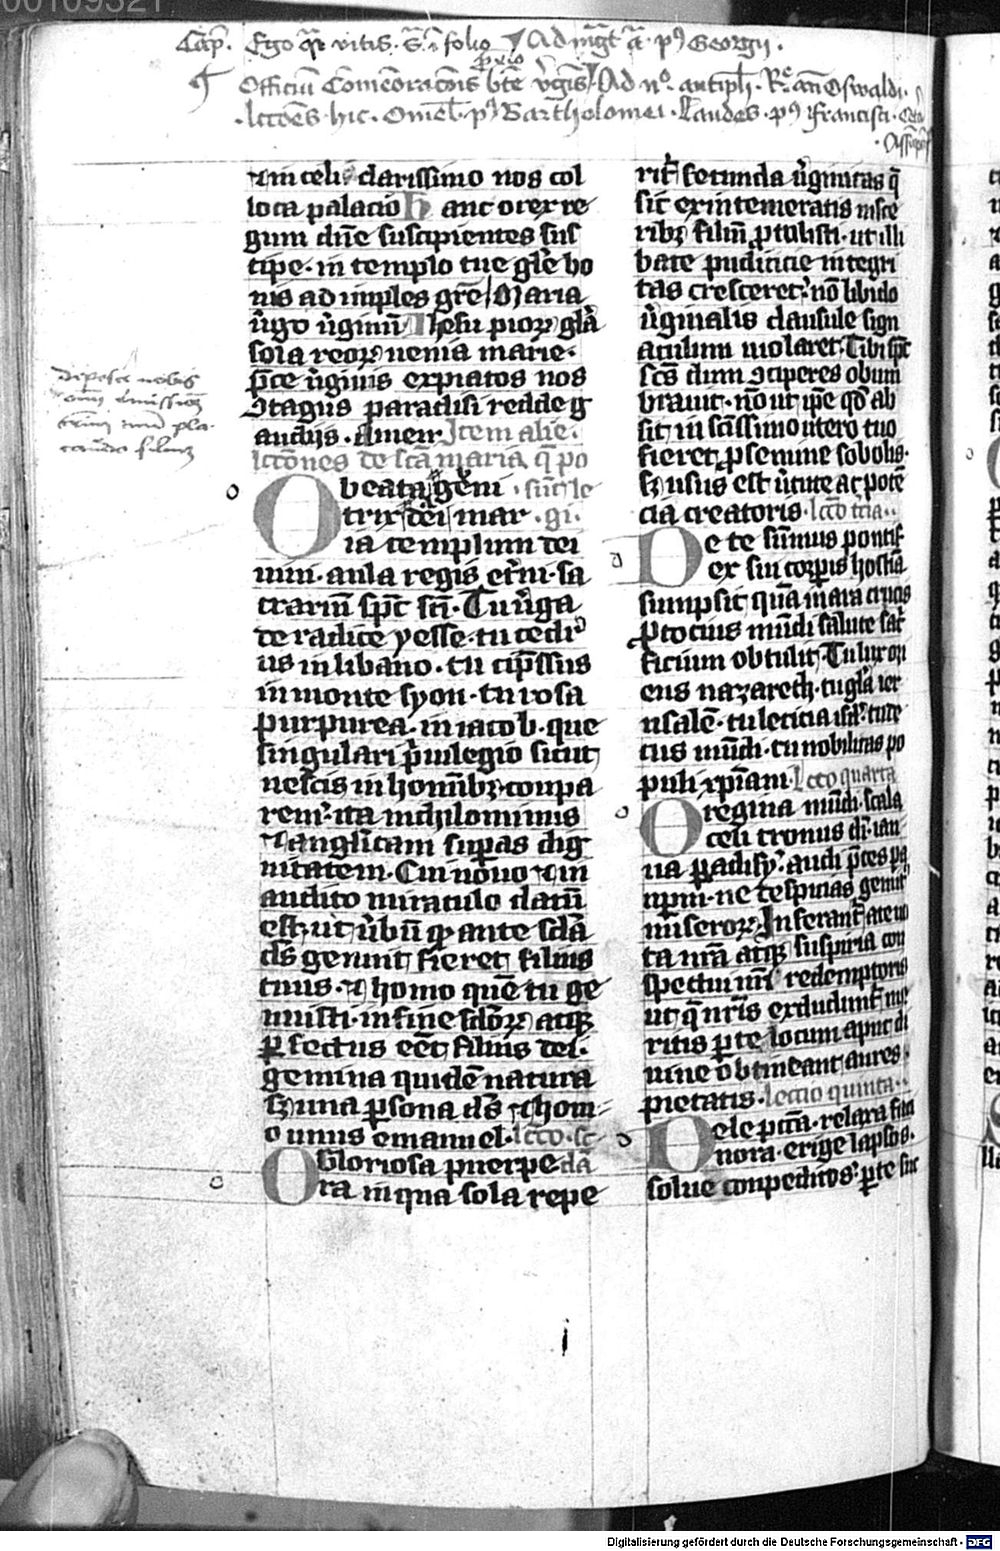 Cap. Ego q̈r vitis. folio Ad mgt a p9 Georgij.
Officiū Comēoracōnis bte v̄gīs Ad no. antiph. Re. an Oswaldi
lccōes hic. Omel. p9 Bartholomei. Laudes. p9 Francisci.
in celi clarissimo nos col
loca palacio H anc o rex re
gum dn̄e suscipientes sus
cipe. in templo tue gl̄e bo
nis ad imples grē Maria
v̄go v̄ginū Ihesu pioꝝ gl̄a
sola reoꝝ uenia marie.
p̄ce v̄ginis expiatos nos
9tagijs paradisi redde g
audijs. Amen. Item alie.
lcc̄ones de sc̄a maria q̄ po
O beata gēni sūt le
trix dei mar gi.
ia templum dei
uiui. aula regis et̄ni. sa
crariū sp̄c sc̄i. Tu v̄ga
de radice yesse. tu cedr9
us in libano. tu cip̄ssus
in monte syon. tu rosa
purpurea. in iacob. que
singulari p̄uilegio sicut
nescis in homībꝫ conpa
rem. ita nichilominus
⁊ anglicam supas dig
nitatem. Cui nouo ⁊ in
audito miraculo datū
est. ut v̄bū qꝫ ante sc̄la
ds̄ genuit fieret filius
tuus. ⁊ homo quē tu ge
nuisti. in fine sc̄loꝝ atqꝫ
ꝑfectus eēt filius dei.
gemina quidē natura
sꝫ una ꝑsona ds̄ ⁊ hom
o unus emanuel. lcc̄o. sc
O Gloriosa puerpe dā
ra in qua sola repe
rit᷑ fecunda v̄ginitas q̄
sic ex intemeratis uisce
ribꝫ filiū ꝓtulisti. ut illi
bate pudicicie integri
tas cresceret. nō libido
v̄ginalis clausule sign
aculum uiolaret. Tibi sp̄c
sc̄s dum 9ciperes obum
brauit. nō ut ip̄e qd̄ ab
sit. in sc̄issimo utero tuo
fieret ꝓ semine sobolis.
sꝫ usus est v̄tute ac potē
cia creatoris. lcc̄o tcia.
D e te sūmus pontif
ex sui corꝑis hostiā
sumpsit quā in ara crucis
ꝓ tocius mūdi salute sac̄
ficium obtulit. Tu lux ori
ens nazareth. tu gl̄a ier
usalē. tu leticia isrl̄. tu de
cus mūdi. tu nobilitas po
puli xp̄iani. lcc̄o quarta
O regina mūdi. scala
celi tronus di. ian
ua ꝑadisy. audi p̄ces pa
uꝑm. ne despicias gemit9
miseroꝝ. Inferant᷑ a te uo
ta nr̄a atqꝫ suspiria con
spectui nr̄i redemptoris
ut q̄ nr̄is excludunt᷑ me
ritis ꝑ te locum aput di
uine obtineant aures
pietatis. lectio quinta.
D ele pccā. relaxa faci
nora. erige lapsos.
solue conpeditos. ꝑ te suc
deposce nobis
Digitalisierung gefördert durch die Deutsche Forschungsgemeinschaft - DFG